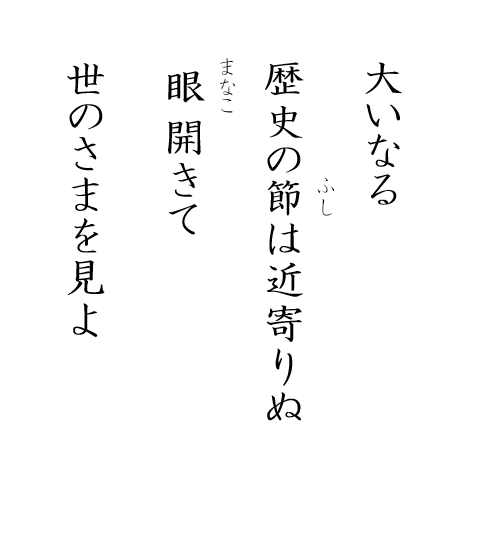 大いなる
歴史の節は近寄りぬ
ふし
眼開きて
まなこ
世のさまを見よ